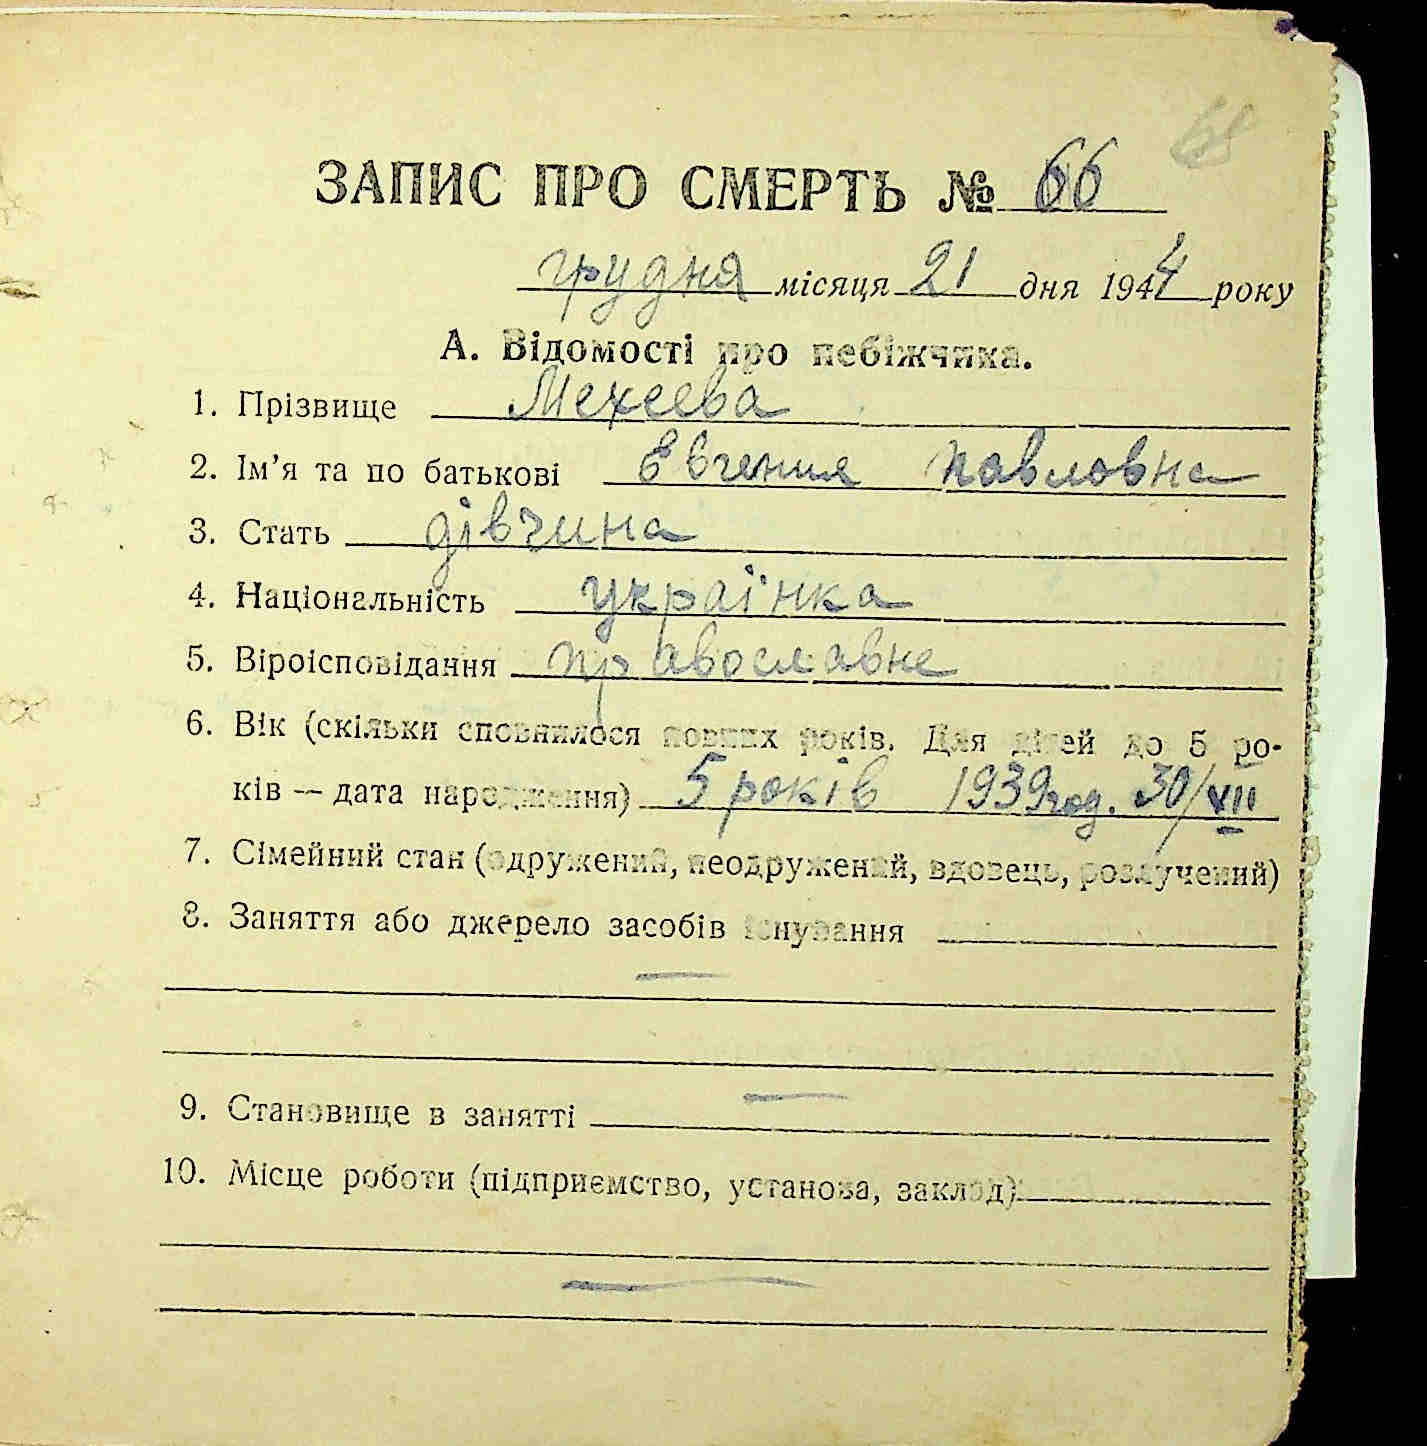 68
ЗАПИС ПРО СМЕРТЬ № 66
грудня місяця 21 дня 1944 року
А. Відомості про небіжчика.
1. Прізвище Мехеева
2. Ім’я та по батькові Евгения Павловна
3. Стать дівчина
4. Національність українка
5. Віроісповідання православне
6. Вік (скільки сповнилося повних років. Для дітей до 5 ро-
ків — дата народження) 5 років 1939 год. 30/VII
7. Сімейний стан (одружений, неодружений, вдовець, розлучений)
8. Заняття або джерело засобів існування
9. Становище в занятті
10. Місце роботи (підприємство, установа, заклад)